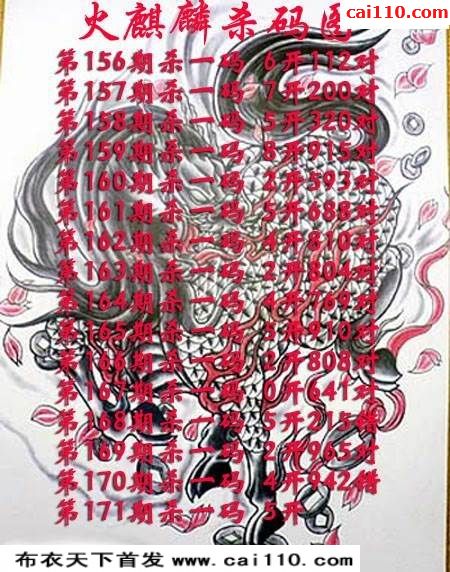 cai110.com
火麒麟杀码区
第156期杀一码 6开112对
第157期杀一码 7开200对
第158期杀一码 5开320对
第159期杀一码 8开915对
第160期杀一码 2开593对
第161期杀一码 5开688对
第162期杀一码 4开810对
第163期杀一码 2开804对
第164期杀一码 4开769对
第165期杀一码 5开910对
第166期杀一码 2开808对
第167期杀一码 0开641对
第168期杀一码 5开215错
第169期杀一码 2开965对
第170期杀一码 4开942错
第171期杀一码 5开
布衣天下首发 www.cai110.com